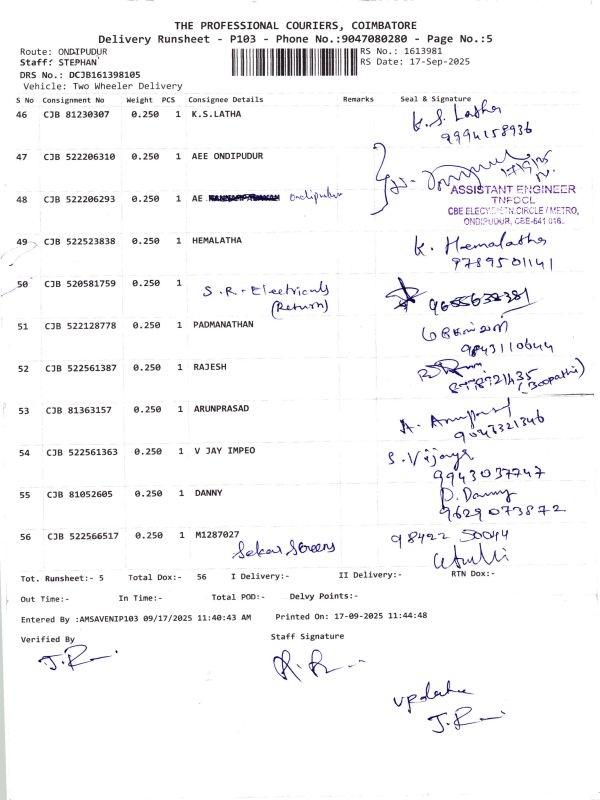 THE PROFESSIONAL COURIERS, COIMBATORE
Delivery Runsheet - P103 - Phone No.:9047080280 - Page No.:5
Route: ONDIPUDUR RS No.: 1613981
Staff: STEPHAN RS Date: 17-Sep-2025
DRS No.: DCJB161398105
Vehicle: Two Wheeler Delivery
S No Consignment No Weight PCS Consignee Details Remarks Seal & Signature
46 CJB 81230307 0.250 1 K.S.LATHA K.S. Latha
9994158936
47 CJB 522206310 0.250 1 AEE ONDIPUDUR
17/9/25
48 CJB 522206293 0.250 1 AE Ondipudur
ASSISTANT ENGINEER
TNPDCL
CBE ELECY.DISTN.CIRCLE / METRO,
ONDIPUDUR, CBE-641 016.
49 CJB 522523838 0.250 1 HEMALATHA K. Hemalatha
9789501141
50 CJB 520581759 0.250 1
S.R. Electricals
(Return)
9655632381
51 CJB 522128778 0.250 1 PADMANATHAN
9843110644
52 CJB 522561387 0.250 1 RAJESH
(Boopathi)
53 CJB 81363157 0.250 1 ARUNPRASAD A. Arunprasad
9047321346
54 CJB 522561363 0.250 1 V JAY IMPEO S. Vijaya
9943037747
55 CJB 81052605 0.250 1 DANNY D. Danny
9629073872
56 CJB 522566517 0.250 1 M1287027 98422 50044
Sekar Screens
Tot. Runsheet:- 5 Total Dox:- 56 I Delivery:- II Delivery:- RTN Dox:-
Out Time:- In Time:- Total POD:- Delvy Points:-
Entered By :AMSAVENIP103 09/17/2025 11:40:43 AM Printed On: 17-09-2025 11:44:48
Verified By Staff Signature